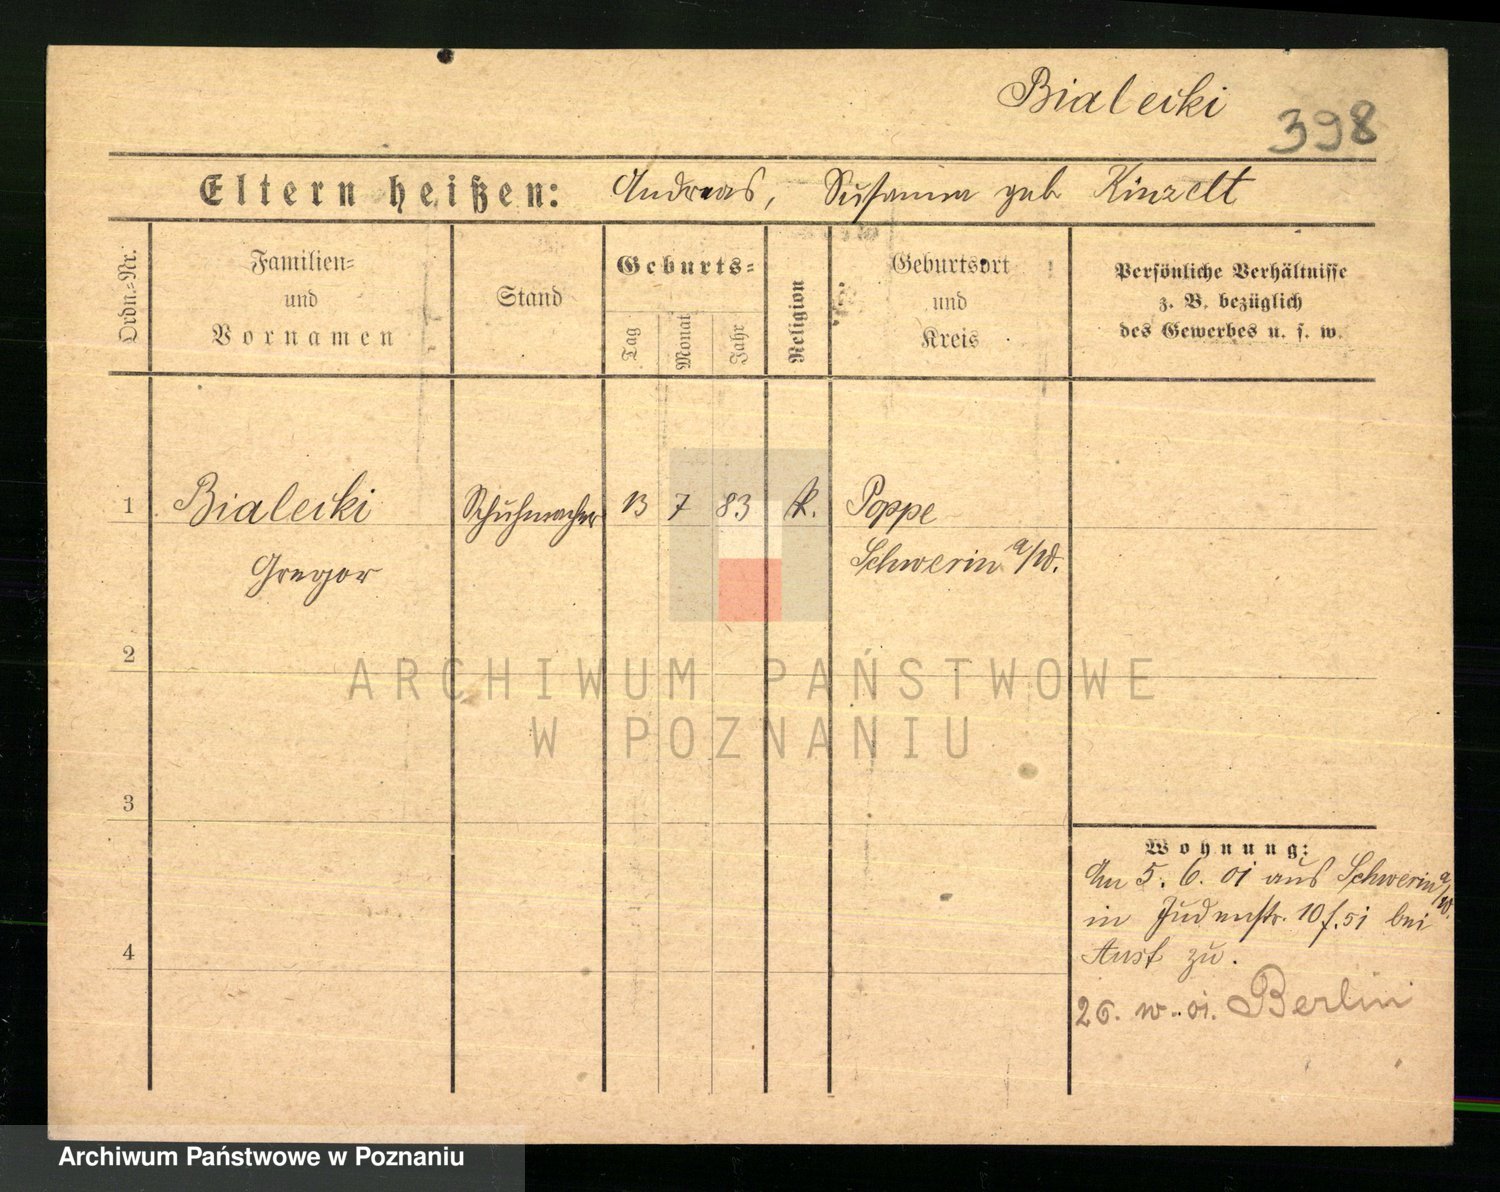 Bialecki
398
Eltern heißen: Andreas, Susanna geb Kinzelt
Ordn.-Nr.
Familien-
und
Vornamen
Stand
Geburts-
Tag
Monat
Jahr
Religion
Geburtsort
und
Kreis
Persönliche Verhältnisse
z. B. bezüglich
des Gewerbes u. s. w.
1 Bialecki Schuhmacher 13 7 83 k. Poppe
Gregor Schwerin a/W.
2
3
4
Wohnung:
Am 5. 6. 01 aus Schwerin a/W.
in Judenstr. 10 f. 51 bei
zu.
26. 01. Berlin
ARCHIWUM PAŃSTWOWE
W POZNANIU
Archiwum Państwowe w Poznaniu